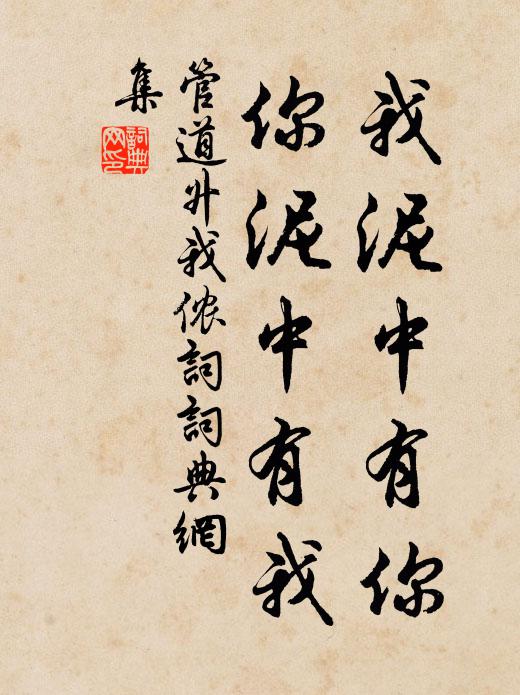 我泥中有你
你泥中有我
管道升我侬詞詞典網
集
詞典
网印